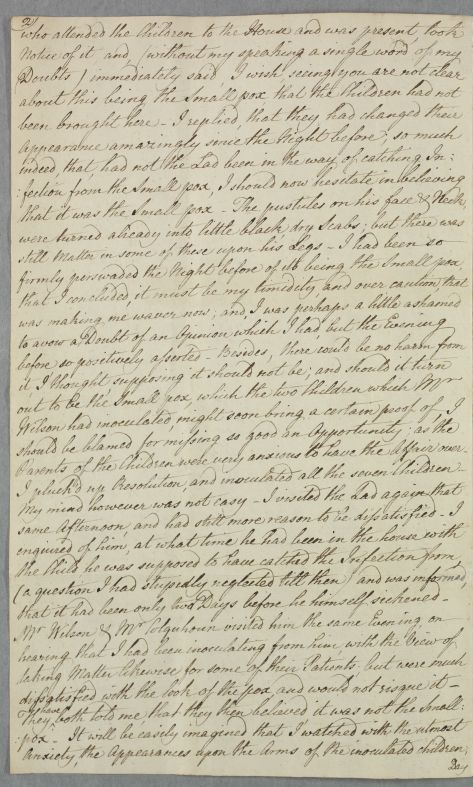 2)
who attended the Children to the House and was present took
Notice of it and (without my speaking a single word of my
Doubts) immediately said I wish seeing you are not clear
about this being the Small pox that the Children had not
been brought here – I replied, that they had changed their
Appearance amazingly since the Night before; so much
indeed, that had not the Lad been in the way of catching In:
:fection from the Small pox, I should now hesitate in believing
that it was the Small pox – The pustules on his face & Neck,
were turned already into little black dry Scabs; but there was
still Matter in some of these upon his Legs – I had been so
firmly perswaded the Night before of its being the Small pox
that I concluded it must be my timidity and over caution that
was making me waver now; and I was perhaps a little ashamed
to avow a Doubt of an Opinion which I had but the Evening
before so positively asserted – Besides, there could be no harm from
it I thought supposing it should not be; and should it turn
out to be the Small pox, which the two Children which Mr
Wilson had inoculated might soon bring a certain proof of, I
should be blamed for missing so good an Opportunity; as the
Parents of the Children were very anxious to have the Affair over.
I pluck'd up Resolution, and inoculated all the seven Children –
My mind however was not easy – I visited the Lad again that
same Afternoon, and had still more reason to be dissatisfied – I
enquired of him, at what time he had been in the house with
the Child he was supposed to have catched the Infection from,
(a question I had stupidly neglected till then) and was informed,
that it had been only two Days before he himself sickened –
Mr Wilson & Mr Colquhoun visited him the same Evening on
hearing that I had been inoculating from him with the View of
taking Matter likewise for some of their Patients. but were much
dissatisfied with the look of the pox, and would not risque it
They have both told me that they then believed it was not the Small:
:pox – It will be easily imagined that I watched with the utmost
Anxiety, the Appearances upon the Arms of the inoculated children;
Day